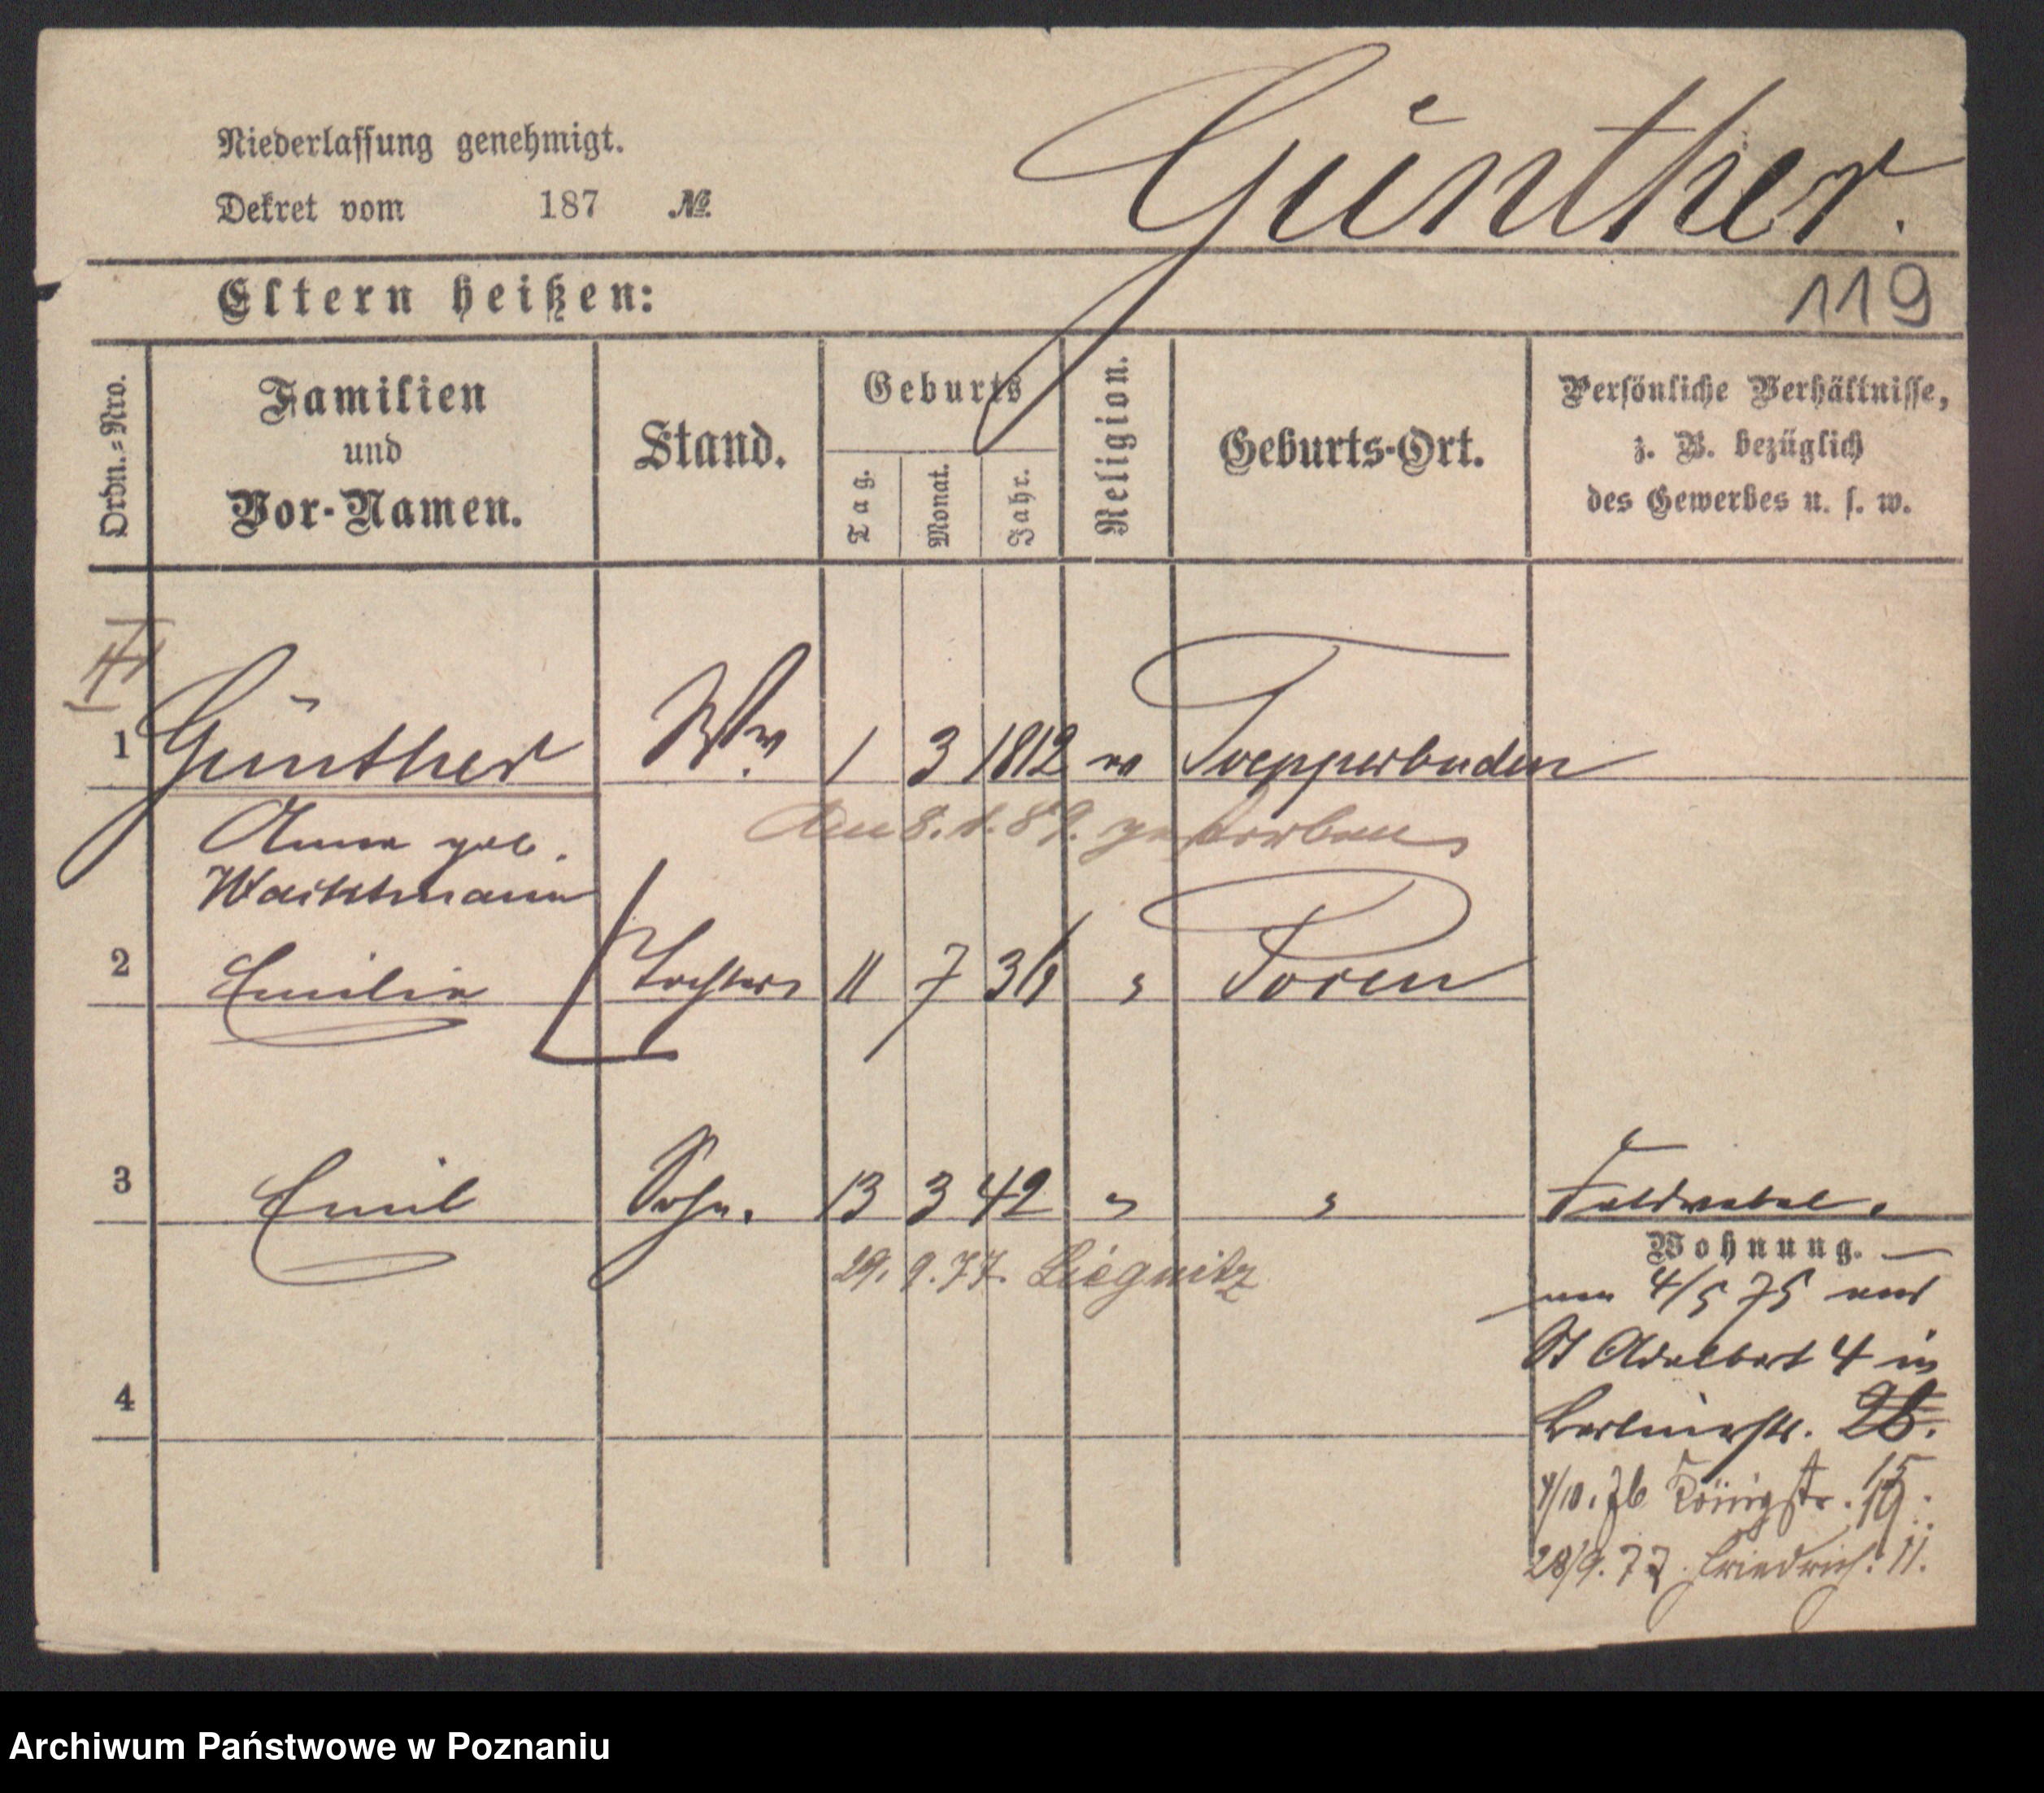 Niederlassung genehmigt.
Dekret vom 187 №
Günther.
119
Eltern heißen:
Ordn.-Nro.
Familien
und
Vor-Namen.
Stand.
Geburts
Tag.
Monat.
Jahr.
Religion.
Geburts-Ort.
Persönliche Verhältnisse,
z. B. bezüglich
des Gewerbes u. s. w.
1 Günther Ww. 1 3 1812 Toepperbuden
Anna geb.
Am 8. 1. 89. gestorben
2 Emilie Tochter 11 7 Posen
3 Emil Sohn. 13 3 42 Feldwebel.
29. 9. 77. Liegnitz
Wohnung.
4/5 75 von
St Adalbert 4 in
Berlinerstr.
4/10. 76 Königstr. 15
28/9. 77. Friedrich. 11.
4
Archiwum Państwowe w Poznaniu